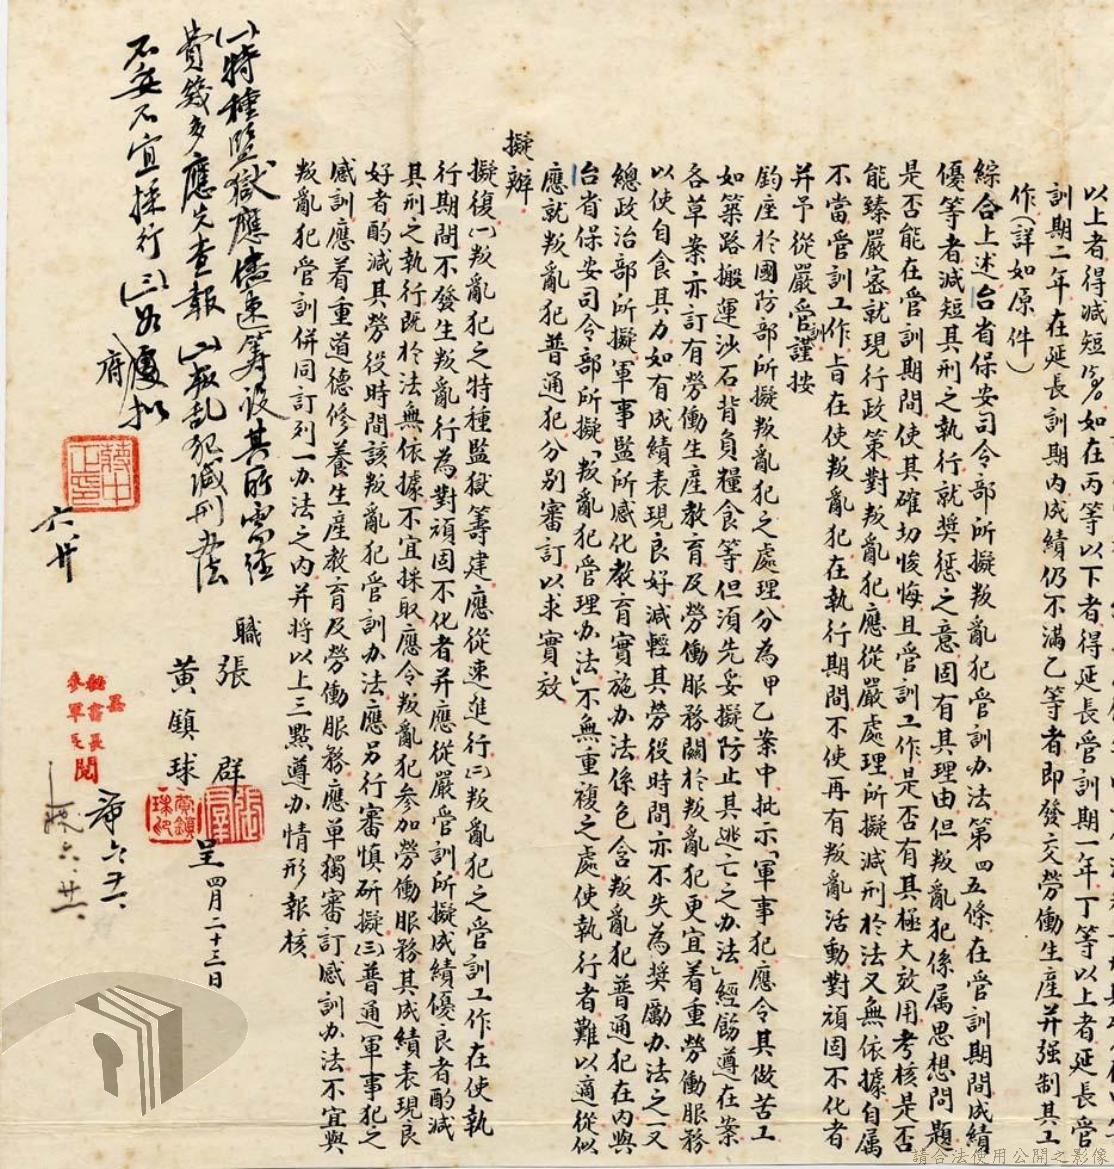 以上者得減短
如在丙等以下者得延長管訓期一年丁等以上者延長管
訓期二年在延長訓期內成績仍不滿乙等者即發交勞働生產并强制其工
作(詳如原件)
綜合上述台省保安司令部所擬叛亂犯管訓办法第四五條在管訓期間成績
優等者減短其刑之執行就奬惩之意固有其理由但叛亂犯係属思想問題
是否能在管訓期間使其確切悛悔且管訓工作是否有其極大效用考核是否
能臻嚴密就現行政策對叛亂犯應從嚴處理所擬減刑於法又無依據自属
不當管訓工作旨在使叛亂犯在執行期間不使再有叛亂活動對頑固不化者
并予從嚴管訓謹按
鈞座於國防部所擬叛亂犯之處理分為甲乙案中批示「軍事犯應令其做苦工
如築路搬運沙石背負糧食等但須先妥擬防止其逃亡之办法」經飭遵在案
各草案亦訂有勞働生產教育及勞働服務關於叛亂犯更宜着重勞働服務
以使自食其力如有成績表現良好減輕其勞役時間亦不失為奬勵办法之一又
總政治部所擬軍事監所感化教育實施办法係包含叛亂犯普通犯在內與
台省保安司令部所擬「叛亂犯管理办法」不無重複之處使執行者難以適從似
應就叛亂犯普通犯分別審訂以求實效
擬辦
擬復㈠叛亂犯之特種監獄籌建應從速進行㈡叛亂犯之管訓工作在使執
行期間不發生叛亂行為對頑固不化者并應從嚴管訓所擬成績優良者酌減
其刑之執行既於法無依據不宜採取應令叛亂犯參加勞働服務其成績表現良
好者酌減其勞役時間該叛亂犯管訓办法應另行審慎研擬㈢普通軍事犯之
感訓應着重道德修養生產教育及勞働服務應單獨審訂感訓办法不宜與
叛亂犯管訓併同訂列一办法之內并將以上三點遵办情形報核
職張群
黃鎮球
呈四月二十三日
㈠特種監獄應儘速籌設其所需經
費幾多應先查報㈡叛乱犯減刑办法
不妥不宜採行㈢如擬
蔣中正印
六廿
秘書長
參軍長
閱
六廿一
請合法使用公開之影像